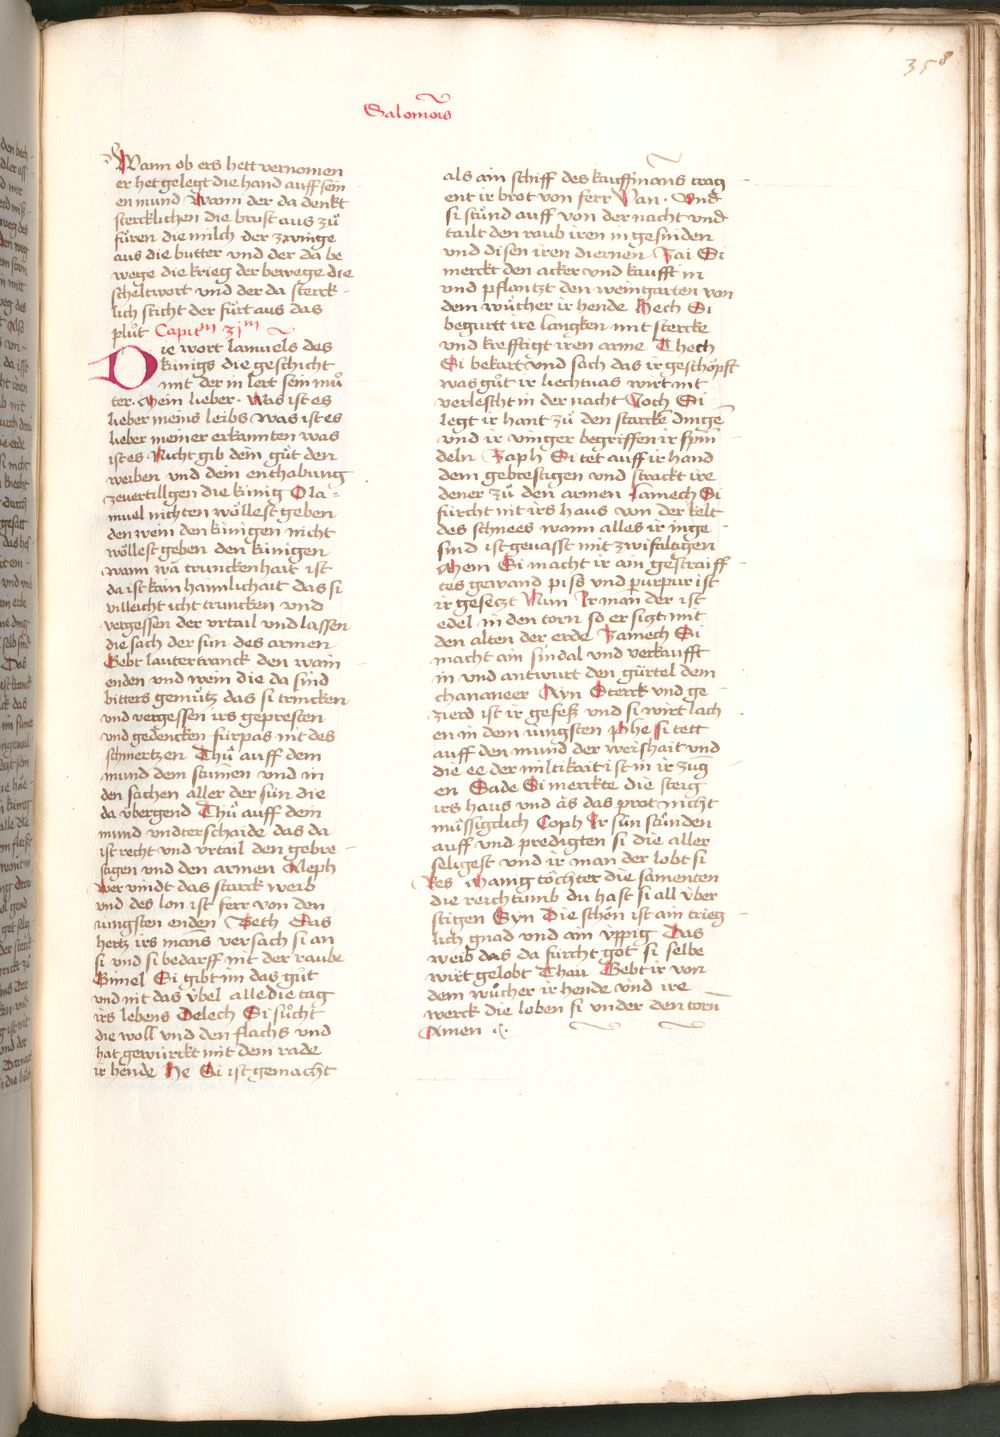 358
Salomois
Wann ob ers hett vernomen
er het gelegt die hand auff sein
en mund Wann der da denkt
stercklichen die brust aus zů
fůren die milch der zwinge
aus die butter und der da be
wege die krieg der bewege die
scheltwort und der da sterck
lich sticht der fůrt aus das
plůt Capitm 31m
Die wort lamuels des
kúnigs die geschicht
mit der in lert sein mů
ter. Mein lieber. Was ist es
lieber meins leibs Was ist es
lieber meiner erkannten was
ist es Nicht gib dein gůt den
weiben und dein enthabung
zeuertillgen die kúnig O la=
muel nichten wöllest geben
den wein den kúnigen nicht
wöllest geben den kúnigen
wann wa trunckenhait ist
da ist kain haimlichait das si
villeicht icht truncken und
vergessen der urtail und lassen
die sach der sún des armen
Gebt lautertranck den wain
enden und wein die da sind
bitters gemútz das si trincken
und vergessen irs gepresten
und gedencken fúrpas nit des
schmertzen Thů auff dem
mund dem stumen und in
den sachen aller der sún die
da úbergend Thů auff dein
mund undterschaide das da
ist recht und urtail den gebre
stigen und den armen Aleph
Wer vindt das starck weib
und des lon ist ferr von den
iungsten enden Beth Das
hertz irs mans versach si an
si und si bedarff nit der raube
Gimel Si gibt im das gůt
und nit das úbel alle die tag
irs lebens Delech Si sůcht
die woll und den flachs und
hat gewúrckt mit dem rade
ir hende He Si ist gemacht
als ain schiff des kauffmans trag
ent ir brot von ferr Van. Und
si stůnd auff von der nacht und
tailt den raub iren ingesinden
und disen iren diernen Zai Si
merckt den acker und kaufft in
und pflantzt den weingarten von
dem wůcher ir hende Hech Si
begurtt ire langken mit stercke
und krefftigt iren arme Thech
Si bekart und sach das ir geschöpft
was gůt ir liechtuas wirt nit
verlescht in der nacht Joch Si
legt ir hant zů den starcke dinge
und ir vinger begriffen ir spin
deln Caph Si tet auff ir hand
dem gebrestigen und strackt ire
dener zů den armen Lamech Si
fúrcht nit irs haus von der kelt
des schnees wann alles ir inge
sind ist geuasst mit zwifaltigen
Mem Si macht ir ain gestraiff
tes gewand piss und purpur ist
ir gesetzt Nun Ir man der ist
edel in den torn so er sitzt mit
den alten der erde Samech Si
macht ain sindal und verkaufft
in und antwurt den gúrtel dem
chananeer Ayn Sterck und ge
zierd ist ir gefess und si wirt lach
en in dem iungsten Phe si tett
auff den mund der weishait und
die ee der miltikait ist in ir zung
en Sade Si merckte die steig
irs haus und as das prot nicht
mússigclich Coph Ir sún stůnden
auff und predigten si die aller
seligest und ir man der lobt si
Res Manig töchter die samenten
die reichtumb du hast si all úber
stigen Syn Die schön ist ain trieg
lich gnad und ain úppig Das
weib das da fúrcht got si selbe
wirt gelobt Thau Gebt ir von
dem wůcher ir hende und ire
werck die loben si under den torn
Amen